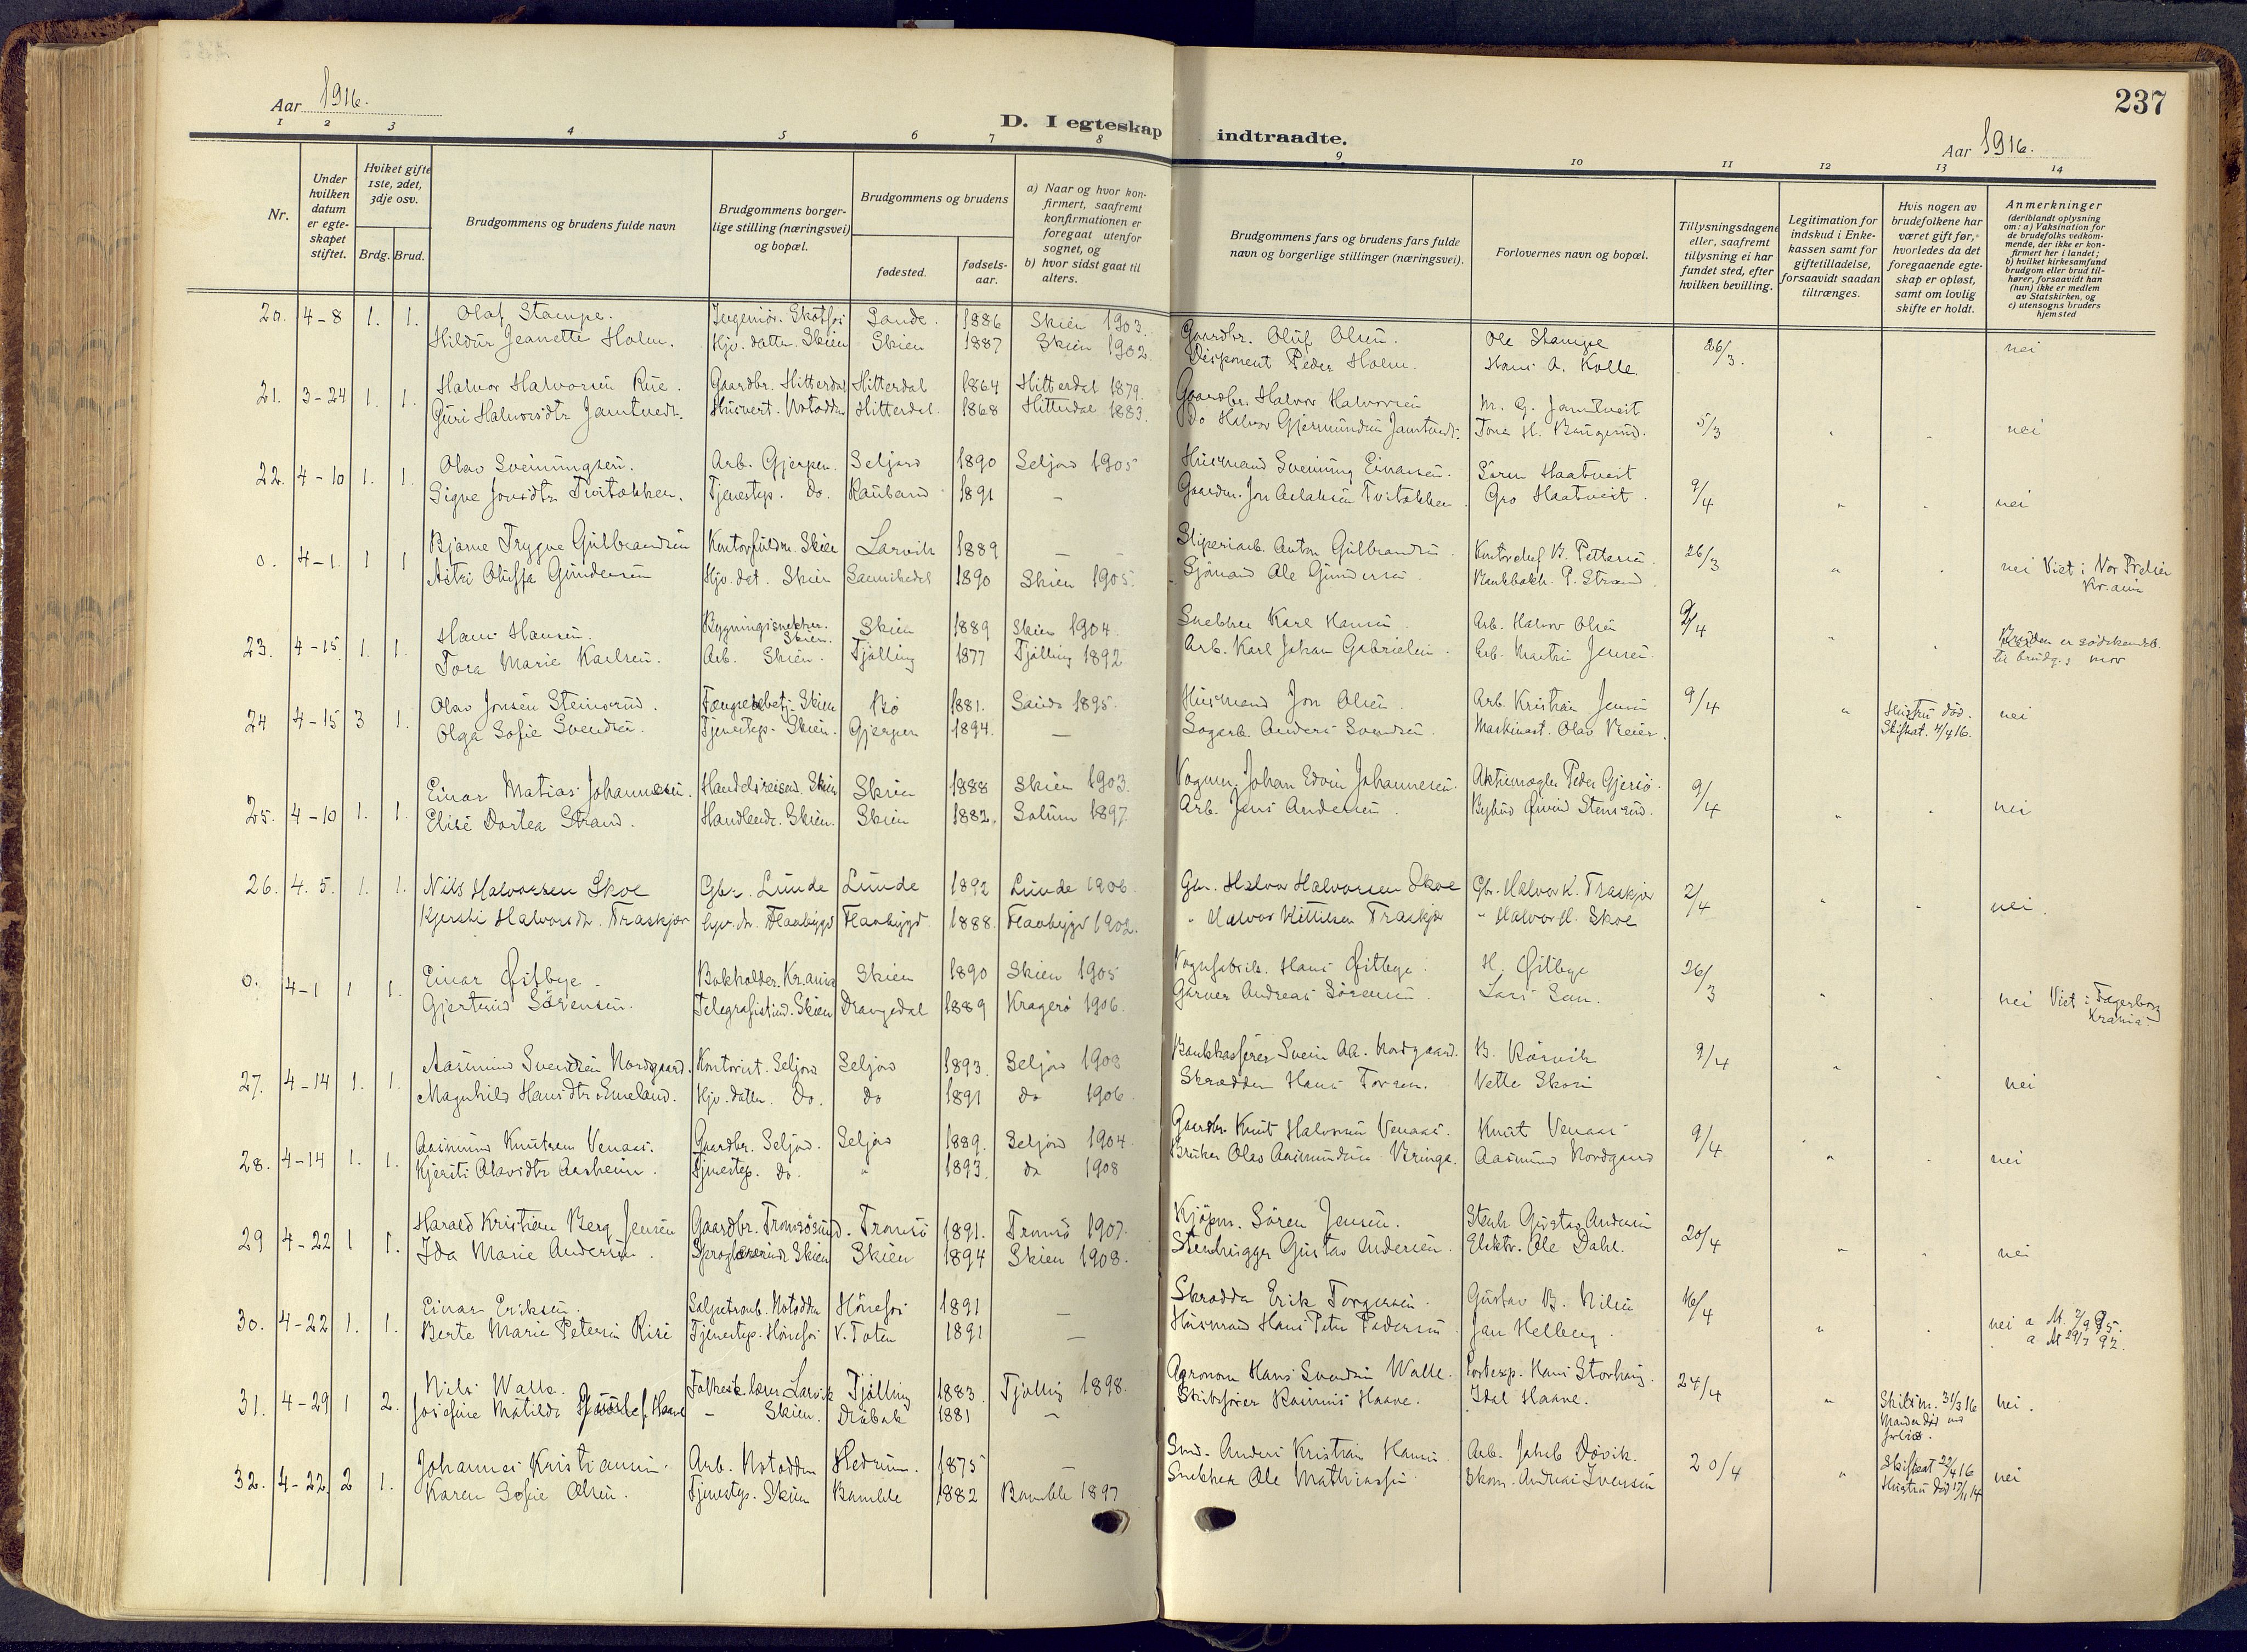 237
Aar 1916.
D. I egteskap indtraadte.
Aar 1916.
1 2 3 4 5 6 7 8 9 10 11 12 13 14
Nr.
Under hvilken datum er egteskapet stiftet.
Hviket gifte 1ste, 2det, 3dje osv.
Brdg. Brud.
Brudgommens og brudens fulde navn
Brudgommens borgerlige stilling (næringsvei) og bopæl.
Brudgommens og brudens
fødested.
fødselsaar.
a) Naar og hvor konfirmert, saafremt konfirmationen er foregaat utenfor sognet, og
b) hvor sidst gaat til alters.
Brudgommens fars og brudens fars fulde navn og borgerlige stillinger (næringsvei).
Forlovernes navn og bopæl.
Tillysningsdagene eller, saafremt tillysning ei har fundet sted, efter hvilken bevilling.
Legitimation for indskud i Enkekassen samt for giftetilladelse, forsaavidt saadan tiltrænges.
Hvis nogen av brudefolkene har været gift før, hvorledes da det foregaaende egteskap er opløst, samt om lovlig skifte er holdt.
Anmerkninger
(deriblandt oplysning om: a) Vaksination for de brudefolks vedkommende, der ikke er konfirmert her i landet; b) hvilket kirkesamfund brudgom eller brud tilhører, forsaavidt han (hun) ikke er medlem av Statskirken, og c) utensogns bruders hjemsted
20. 4-8 1. 1. Olaf Stampe. Ingeniør. Skotfos Sande. 1886 Skien 1903. Gaardbr. Oluf Olsen. Ole Stampe 26/3. nei
Hildur Jeanette Holm. Hjv. datter. Skien Skien 1887 Skien 1902. Disponent Peder Holm. Hans A. Kolle.
21. 3-24 1. 1. Halvor Halvorsen Rue. Gaardbr. Hitterdal Hitterdal 1864 Hitterdal 1879. Gaardbr. Halvor Halvorsen M. G. Jamtveit 5/3 nei
Guri Halvorsdtr Jamtvedt. Notodden Hitterdal. 1868 Hitterdal 1883. Do Halvor Gjermundsen Jamtvedt. Tone H.
22. 4-10 1. 1. Olav Sveinungsen. Arb. Gjerpen. Seljord 1890 Seljord 1905 Husmand Sveinung Einarsen. Søren Haatveit 9/4 nei
Signe Jonsdtr Tvitækken. Tjenestep. Do. Rauland 1891 — Gaardm. Jon Aslaksen Tvitækken Gro Haatveit.
0. 4-1. 1 1 Bjarne Trygve Gulbrandsen Kontorfuldm. Skien Larvik 1889 — Sliperiarb. Anton Gulbrandsen. Kontorchef B. Pettersen. 26/3 nei Viet i Vor Frelser
Astri Gundersen Hjv. det. Skien 1890 Skien 1905. Sjömand Ole Gundersen. Bankbokh. P. Strand. Kr.ania
23. 4-15. 1. 1. Hans Hansen. Bygningssnekker. Skien. Skien 1889 Skien 1904. Snekker Karl Hansen. Arb. Halvor Olsen 9/4 Bruden er sødskendb.
Tora Marie Karlsen. Arb. Skien. Tjølling 1877 Tjølling 1892 Arb. Karl Johan Gabrielsen. Arb. Martin Jensen. til brudg.s mor
24 4-15 3 1. Olav Jonsen Steinsrud. Fængselsbetj. Skien Bø 1881. 1895. Husmand Jon Olsen. Arb. Kristian Jensen 9/4 Hustru død. nei
Olga Sofie Svendsen. Tjenestep. Skien. Gjerpen 1894. — Sagarb. Anders Svendsen. Maskinast. Olav Skifteat. 4/4 16.
25. 4-10 1. 1. Einar Matias Johannesen. Handelsreisend. Skien Skien 1888 Skien 1903. Vognm. Johan Edvin Johannesen. Aktiemægler Peder Gjersø. 9/4 nei
Elise Dortea Strand. Handlende. Skien. Skien 1882. Solum 1897. Arb. Jens Andersen. Bybud Øivind Stensrud.
26. 4.5. 1. 1. Nils Halvorsen Skoe Gbr. Lunde Lunde 1892 Lunde 1906. Gbr. Halvor Halvorsen Skoe Gbr. Halvor K. Traskjør 2/4 nei.
Kjersti Halvorsdtr. Traskjør hjv. dtr. Flaabygd Flaabygd 1888. Flaabygd 1902. " Halvor Kittilsen Traskjør " Halvor H. Skoe
0. 4-1 1 1. Einar Østbye. Bokholder. Kr.ania Skien 1890 Skien 1905 Vognfabrik. Hans Østbye. H. Østbye 26/3 nei Viet i Fagerborg
Gjertrud Sørensen. Telegrafistind. Skien Drangedal 1889 Kragerø 1906. Garver Andreas Sørensen. Lars Krania.
27. 4-14 1. 1. Aasmund Svendsen Nordgaard. Kontorist. Seljord Seljord 1893. Seljord 1908 Bankkasserer Svein Aa. Nordgaard. B. Rørvik 9/4 nei
Magnhild Hansdtr. Hjv. datter. Do. do 1891 do 1906. Skrædder Hans Vetle Skori
28. 4-14 1. 1. Aasmund Knutsen Venaas. Gaardbr. Seljord. Seljord 1889. Seljord 1904. Gaardbr. Knut Halvorsen Venaas. Knut Venaas 9/4 nei
Kjersti Olavsdtr Aasheim. Tjenestep. do. " 1893. do 1908 Bruker Olav Aasmundsen Bringa. Aasmund Nordgaard
29 4-22 1 1. Harald Kristian Berg Jensen Gaardbr. Tromsøsund. Tromsø 1891. Tromsø 1907. Kjøpm. Sören Jensen. Stenh. Gustav Andersen 20/4 nei
Ida Marie Andersen. Sproglærerinde Skien Skien 1894 Skien 1908. Stenhugger Gustav Andersen. Elektr. Ole Dahl.
30. 4-22 1. 1. Einar Eriksen. Salpeterarb. Notodden Hönefos 1891 — Skrædder Erik Torgersen. Gustav B. Nilsen 16/4 nei a
Berte Marie Petersen Risi Tjenestep. Hönefos V. Toten 1891 — Husmand Hans Peter Pedersen Jan Helberg.
31. 4-29 1 2. Nils Walle. Folkesk. lærer Larvik Tjølling 1883. Tjølling 1898. Agronom Hans Svendsen Walle. Hans Storhaug. 24/4 Skiftem. 31/3 16 nei.
Josefine Matilde f. Haave - Skien. Drøbak 1881 — Skibsfører Rasmus Haave. Idal Haave. Manden død
32. 4-22. 2 1. Johannes Kristiansen. Arb. Notodden Hedrum. 1875 — Smed. Anders Kristian Hansen Arb. Jakob Døvik. 20/4 Skifteat 22/4 16 nei
Karen Sofie Olsen. Tjenestep. Skien Bamble 1882 Bamble 1897 Snekker Ole Mathiassen Skom. Andreas Iversen Hustru død 17/11 14